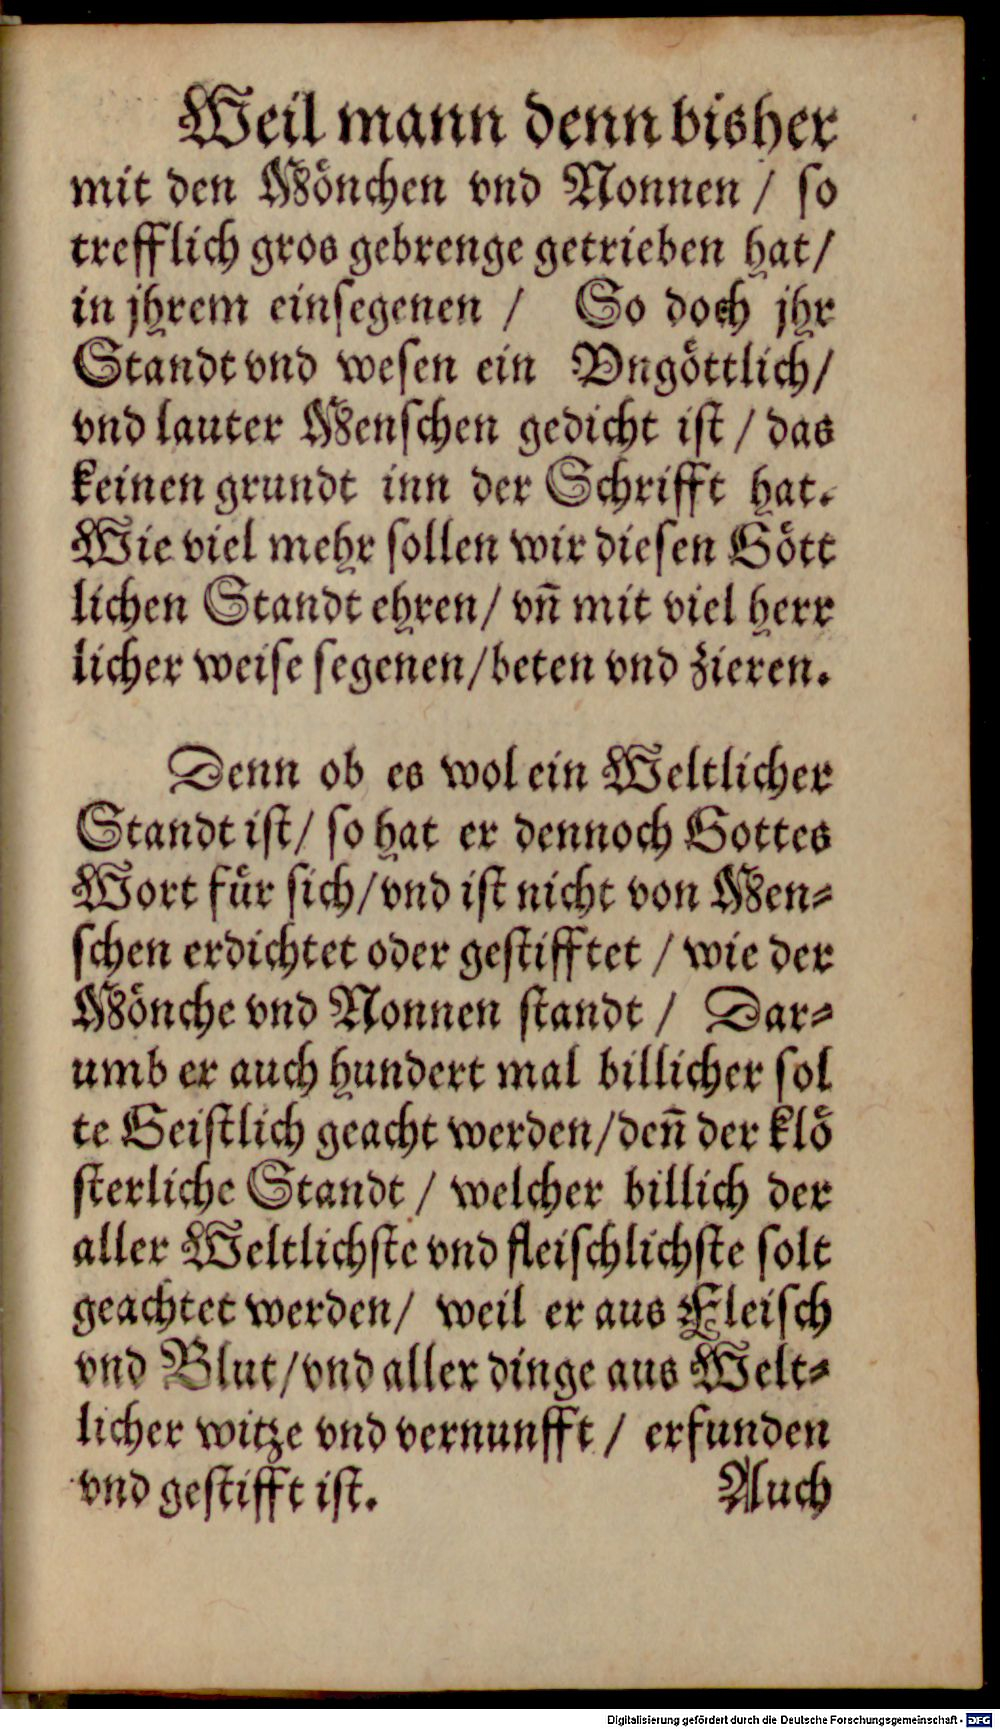 Weil mann denn bisher
mit den Mönchen vnd Nonnen / so
trefflich gros gebrenge getrieben hat/
in jhrem einsegenen / So doch jhr
Standt vnd wesen ein Vngöttlich/
vnd lauter Menschen gedicht ist / das
keinen grundt inn der Schrifft hat.
Wie viel mehr sollen wir diesen Gött
lichen Standt ehren/ vn̄ mit viel herr
licher weise segenen/beten vnd zieren.
Denn ob es wol ein Weltlicher
Standt ist/ so hat er dennoch Gottes
Wort für sich/vnd ist nicht von Men-
schen erdichtet oder gestifftet / wie der
Mönche vnd Nonnen standt / Dar-
umb er auch hundert mal billicher sol
te Geistlich geacht werden/den̄ der klö
sterliche Standt / welcher billich der
aller Weltlichste vnd fleischlichste solt
geachtet werden/ weil er aus Fleisch
vnd Blut/vnd aller dinge aus Welt-
licher witze vnd vernunfft / erfunden
vnd gestifft ist. Auch
Digitalisierung gefördert durch die Deutsche Forschungsgemeinschaft - DFG